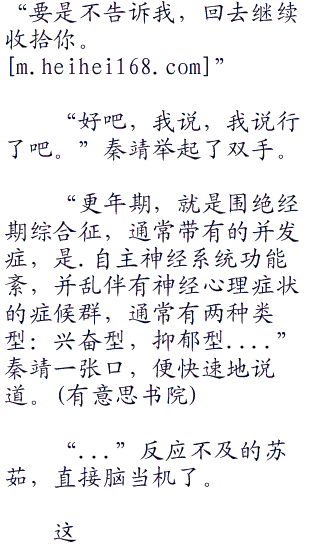 “要是不告诉我，回去继续
收拾你。
[m.heihei168.com]”
“好吧，我说，我说行
了吧。”秦靖举起了双手。
“更年期，就是围绝经
期综合征，通常带有的并发
症，是.自主神经系统功能
紊，并乱伴有神经心理症状
的症候群，通常有两种类
型：兴奋型，抑郁型....”
秦靖一张口，便快速地说
道。(有意思书院)
“...”反应不及的苏
茹，直接脑当机了。
这